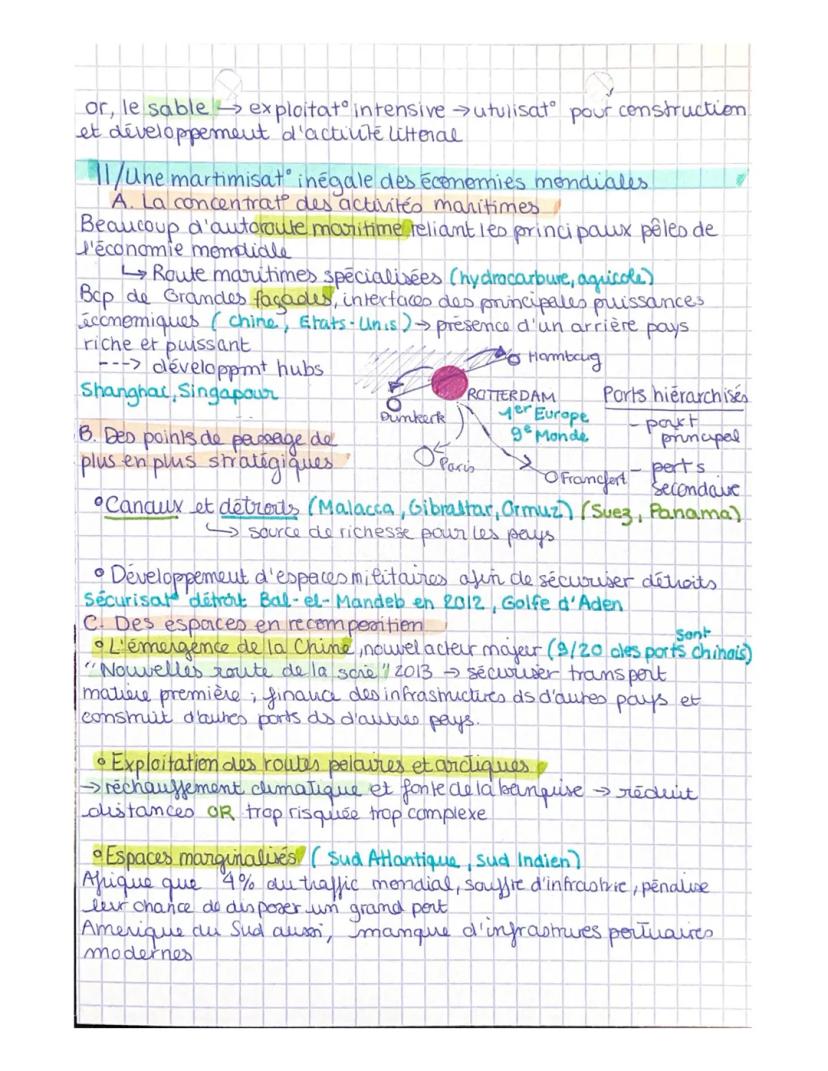 or, le sable → exploitat° intensive → utulisat° pour construction
et développement d'activité litteral
II/Une martimisat° inégale des économies mondiales
A. La concentrat° des activités maritimes
Beaucoup d'autoroute maritime reliant les principaux pôles de
l'économie mondiale
↳ Route maritimes spécialisées (hydrocarbure, aquicole)
Bcp de Grandes façades, interfaces des principales puissances
économiques (chine, Etats-Unis) → présence d'un arrière pays
riche et puissant
---> développmt hubs
Shanghai, Singapour
Hambourg
ROTTERDAM
1er Europe
9e Monde
Dunkerk
Paris
Francfort
Ports hiérarchisés
- port
principal
- ports
secondaire
B. Des points de passage de
plus en plus stratégiques
• Canaux et détroits (Malacca, Gibraltar, Ormuz) (Suez, Panama)
↳ source de richesse pour les pays
• Développement d'espaces militaires afin de sécuriser détroits
Sécurisat° détroit Bal-el-Mandeb en 2012, Golfe d'Aden
C- Des espaces en recomposition
• L'émergence de la Chine, nouvel acteur majeur (9/20 des ports sont chinois)
"Nouvelles route de la soie" 2013 → sécuriser transport
matière première ; finance des infrastructures ds d'autres pays et
construit d'autres ports ds d'autres pays.
• Exploitation des routes polaires et arctiques
→ réchauffement climatique et fonte de la banquise → réduit
distances OR trop risquée trop complexe
• Espaces marginalisés (Sud Atlantique, Sud Indien)
Afrique que 4% du traffic mondial, souffre d'infrastrc, pénalise
leur chance de disposer un grand port
Amerique du Sud aussi, manque d'infrastrures portuaires
modernes